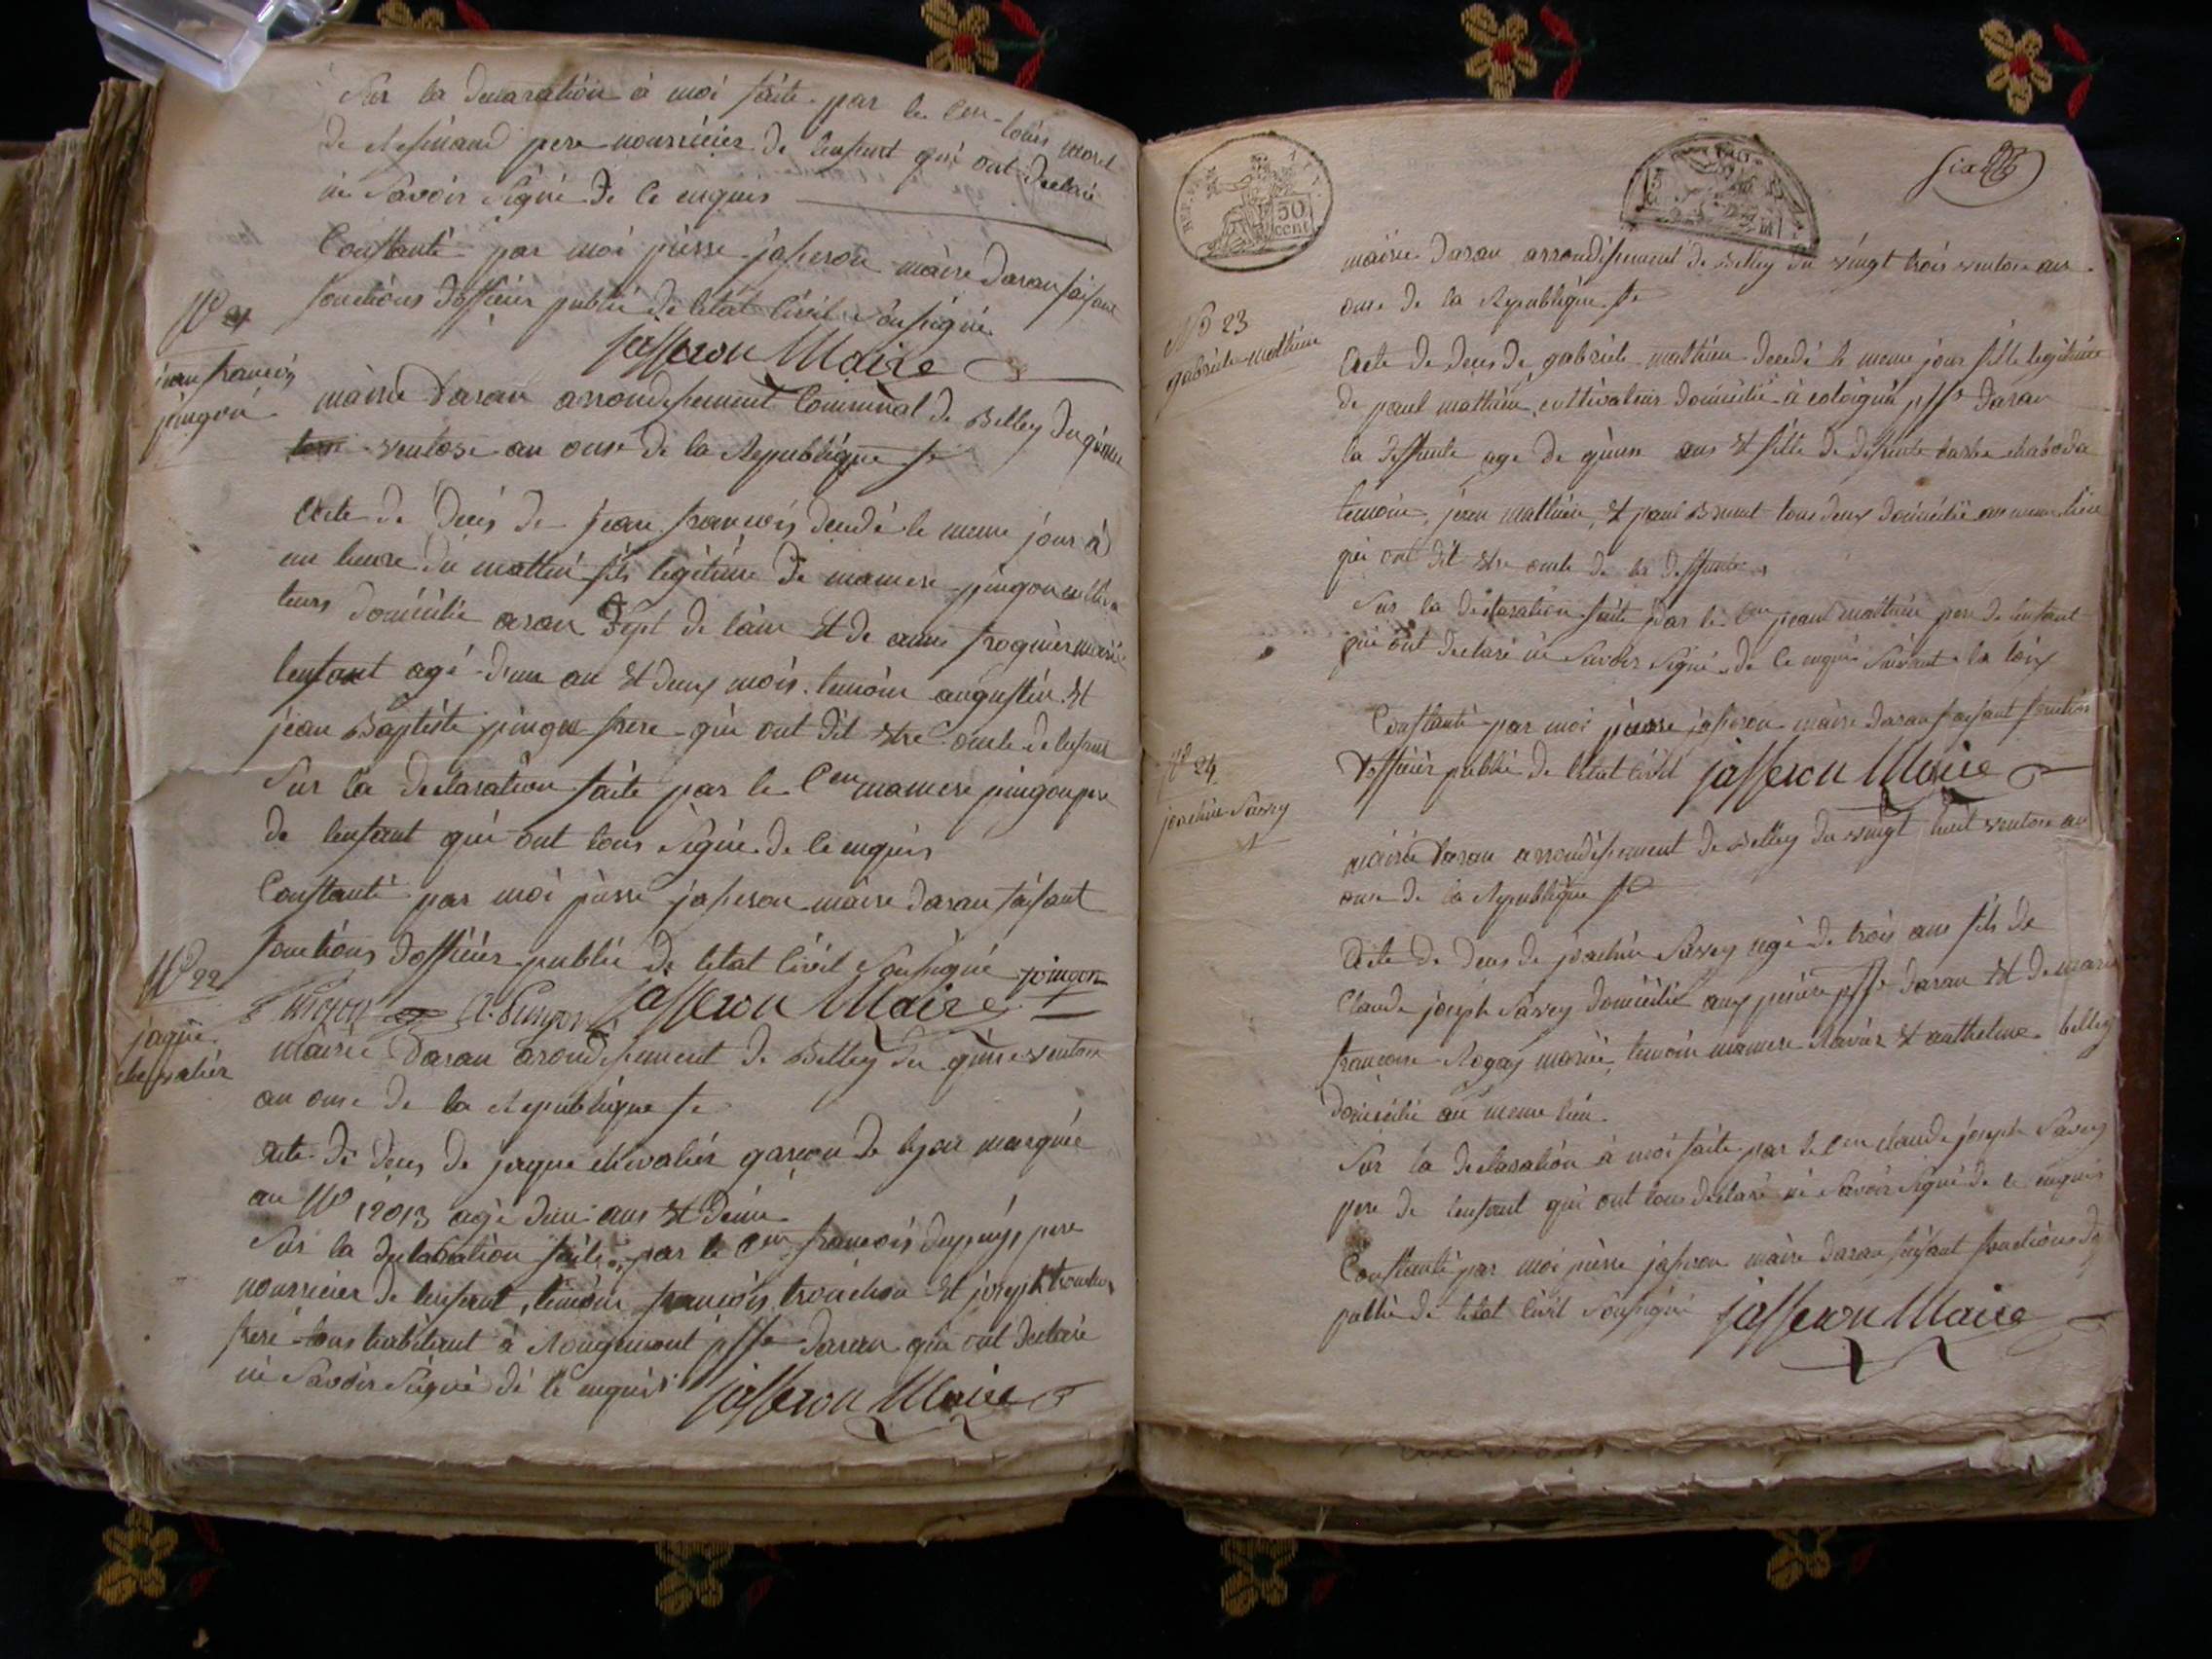 Sur la declaration à moi faite par le Cen louis moret
de Resinand pere nourricier de lenfant qui ont declaré
ne savoir signé de ce enquis
Constanté par moi pierre jasseron maire daran faisant
fonctions dofficier public de letat civil sousigné
jasseron Maire
No 21
jean francois
pingon
mairie daran arrondissement communal de Belley du quinse
ventose an onse de la Republique fr
Acte de deces de jean francois decedé le meme jour à
un heure du mattin fils legitime de mamere pingon cultiva
teurs domicilié aran dept de lain et de anne froquier marié
lenfant agé dun an et deux mois temoin augustin et
jean Baptiste pingon frere qui ont dit etre oncle de lenfant
Sur la declaration faite par le Cen mamere pingon pere
de lenfant qui ont tous signé de ce enquis
Constanté par moi pierre jasseron maire daran faisant
fonctions dofficier public de letat civil sousigné pingon
A. Pingon jasseron Maire
No 22
jaque
chevalier
Mairie daran arondissement de Belley du quinse ventose
an onse de la Republique fr
acte de deces de jaque chevalier garcon de lyon marquée
au No 12013 agé dun ans et demi
Sur la declaration faite par le Cen francois dupuis pere
nourricier de lenfant, temoin francois tronchon et joseph tronchon
frere tous habitant à Rougemont psse daran qui ont declaré
ne savoir signé de ce enquis jasseron Maire
REP. FRA.
50
cent
six
mairie daran arrondissement de Belley du vingt trois ventose an
onse de la Republique fr
No 23
gabriele mathieu
Acte de deces de gabriele mathieu decedé le meme jour fille legitime
de paul mathieu, cultivateur domicilié à cologniat psse daran
la deffunte age de quinse ans et fille de deffunte barbe chaboda
temoin, jean mathieu, et paul Brunet tous deux domicilié au meme lieu
qui ont dit etre oncle de la deffunte
Sur la declaration faite par le Cen paul mathieu pere de lenfant
qui ont declaré ne savoir signé de ce enquis suivant la loix
Constanté par moi pierre jasseron maire daran faisant fonction
dofficier public de letat civil jasseron Maire
No 24
joachin Savey
mairie daran arrondissement de Belley du vingt huit ventose an
onse de la Republique fr
Acte de deces de joachin Savey agé de trois ans fils de
Claude joseph Savey domicilié aux psse daran et de marie
francoise Rogay marié, temoin mamere Ravier et anthelme belley
domicilié au meme lieu.
Sur la declaration à moi faite par le Cen claude joseph Savey
pere de lenfant qui ont tous declaré ne savoir signé de ce enquis
Constanté par moi pierre jasseron maire daran faisant fonctions do
public de letat civil sousigné jasseron Maire